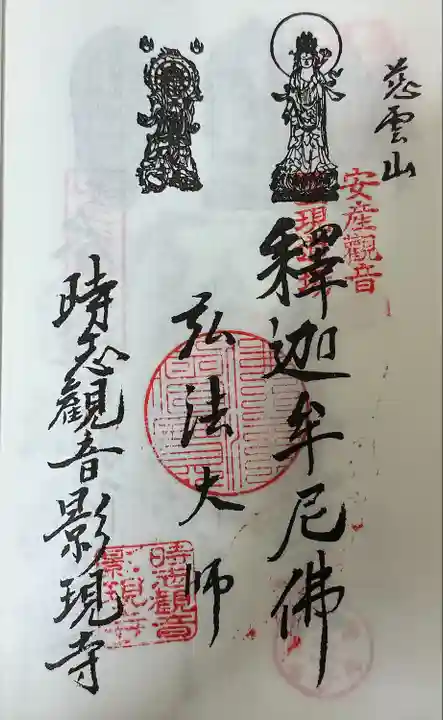 慈雲山
安産觀音
釋迦牟尼佛
弘法大師
時志觀音影現寺
時志觀音
影現寺